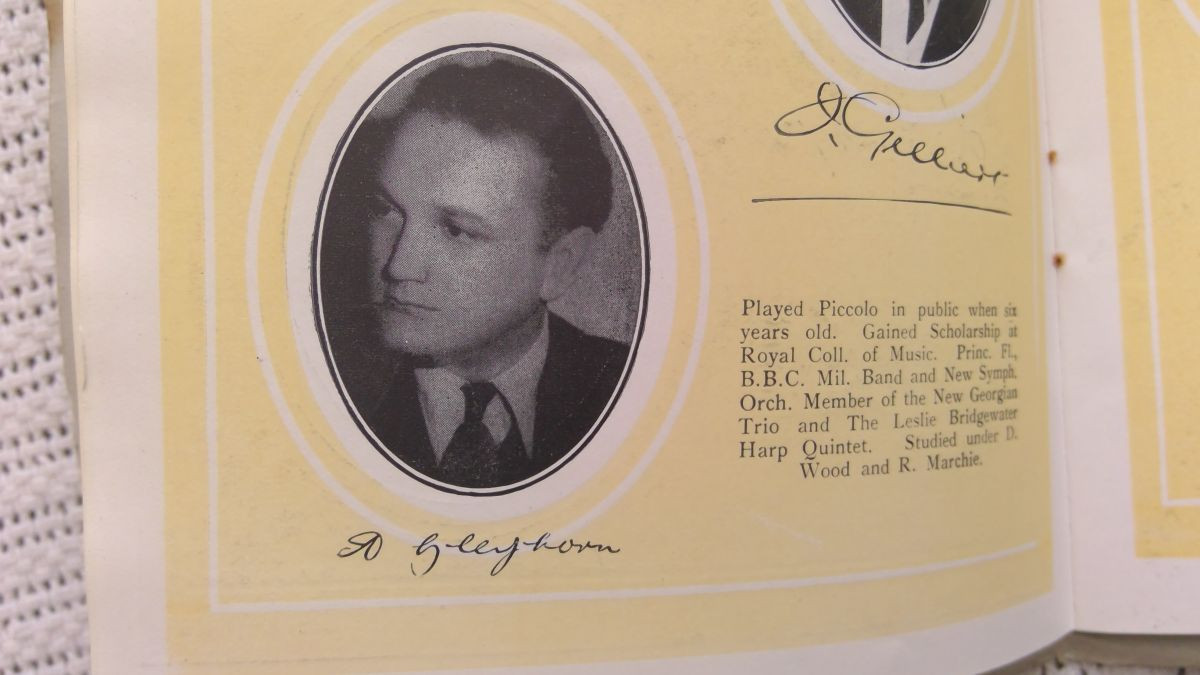 J. Gilbert
Played Piccolo in public when six
years old. Gained Scholarship at
Royal Coll. of Music. Princ. Fl.,
B.B.C. Mil. Band and New Symph.
Orch. Member of the New Georgian
Trio and The Leslie Bridgewater
Harp Quintet. Studied under D.
Wood and R. Marchie.
A Gleghorn